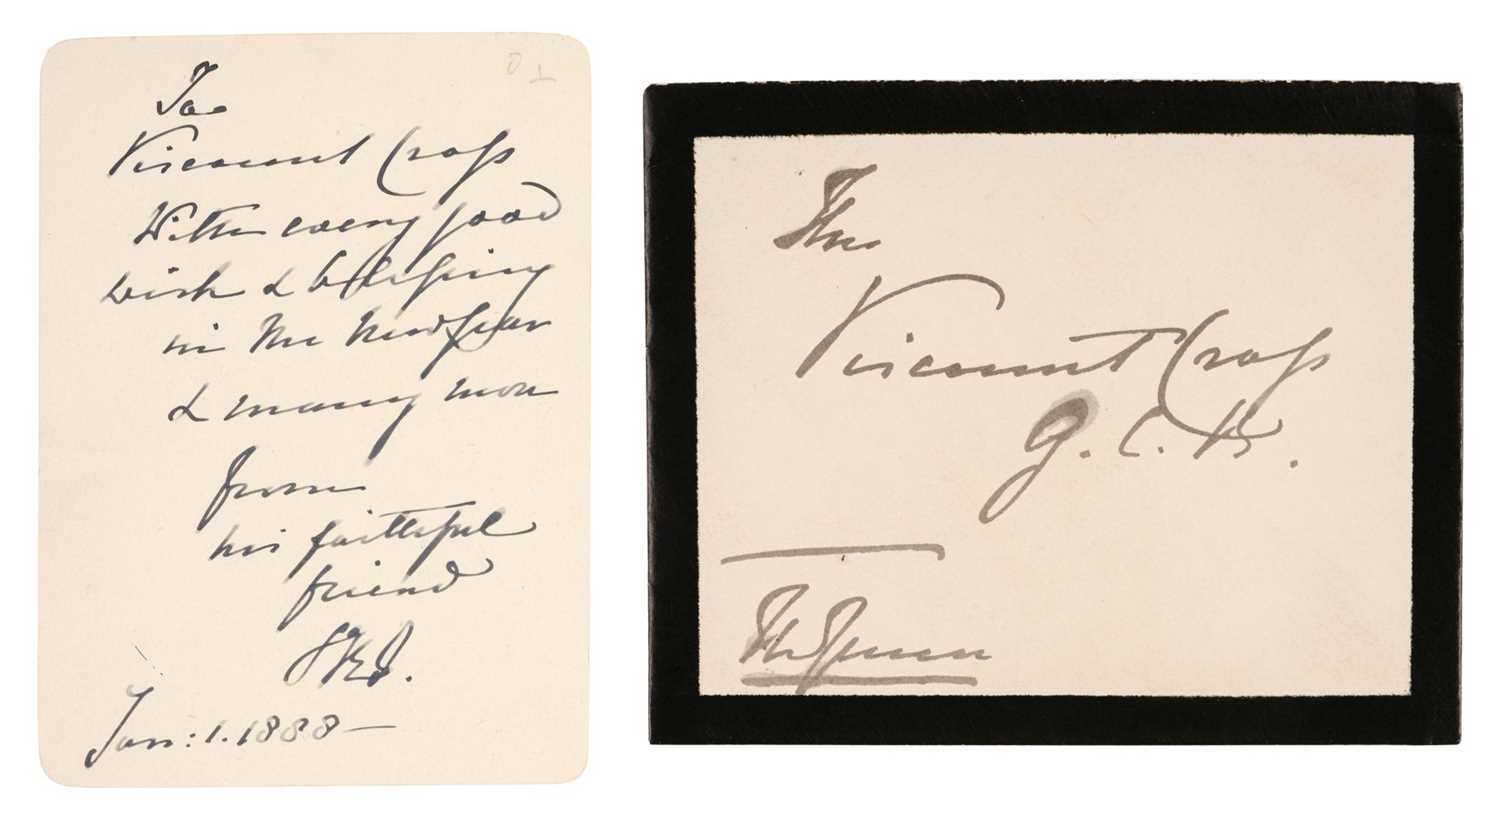 To
Viscount Cross
With every good
wish & blessing
in the New Year
& many more
from
his faithful
friend
VRI.
Jan: 1. 1888 –
The
Viscount Cross
G.C.B.
The Queen